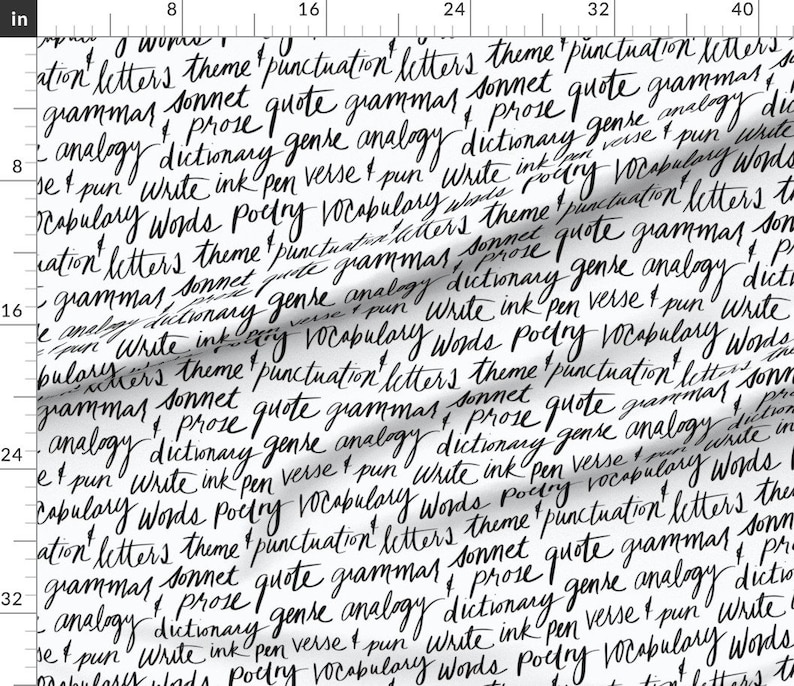 in 8 16 24 32 40
words
ation & letters theme & punctuation & letters theme & punctuation
grammar sonnet quote grammar sonnet quote grammar
analogy & prose dictionary genre analogy & prose dictionary genre analogy
& pun write ink pen verse & pun write ink pen verse & pun write
words poetry vocabulary words poetry vocabulary words
letters theme & punctuation & letters theme & punctuation & letters
8
grammar sonnet quote grammar sonnet quote grammar
analogy & prose dictionary genre analogy & prose dictionary genre analogy
& pun write ink pen verse & pun write ink pen verse & pun write
16
poetry vocabulary words poetry vocabulary words
letters theme & punctuation & letters theme & punctuation & letters
grammar sonnet quote grammar sonnet quote grammar
analogy & prose dictionary genre analogy & prose dictionary genre analogy
24
& pun write ink pen verse & pun write ink pen verse & pun write
words poetry vocabulary words poetry vocabulary words
letters theme & punctuation & letters theme & punctuation & letters
grammar sonnet quote grammar sonnet quote grammar
32
analogy & prose dictionary genre analogy & prose dictionary genre analogy
& pun write ink pen verse & pun write ink pen verse & pun write
words poetry vocabulary words poetry vocabulary words